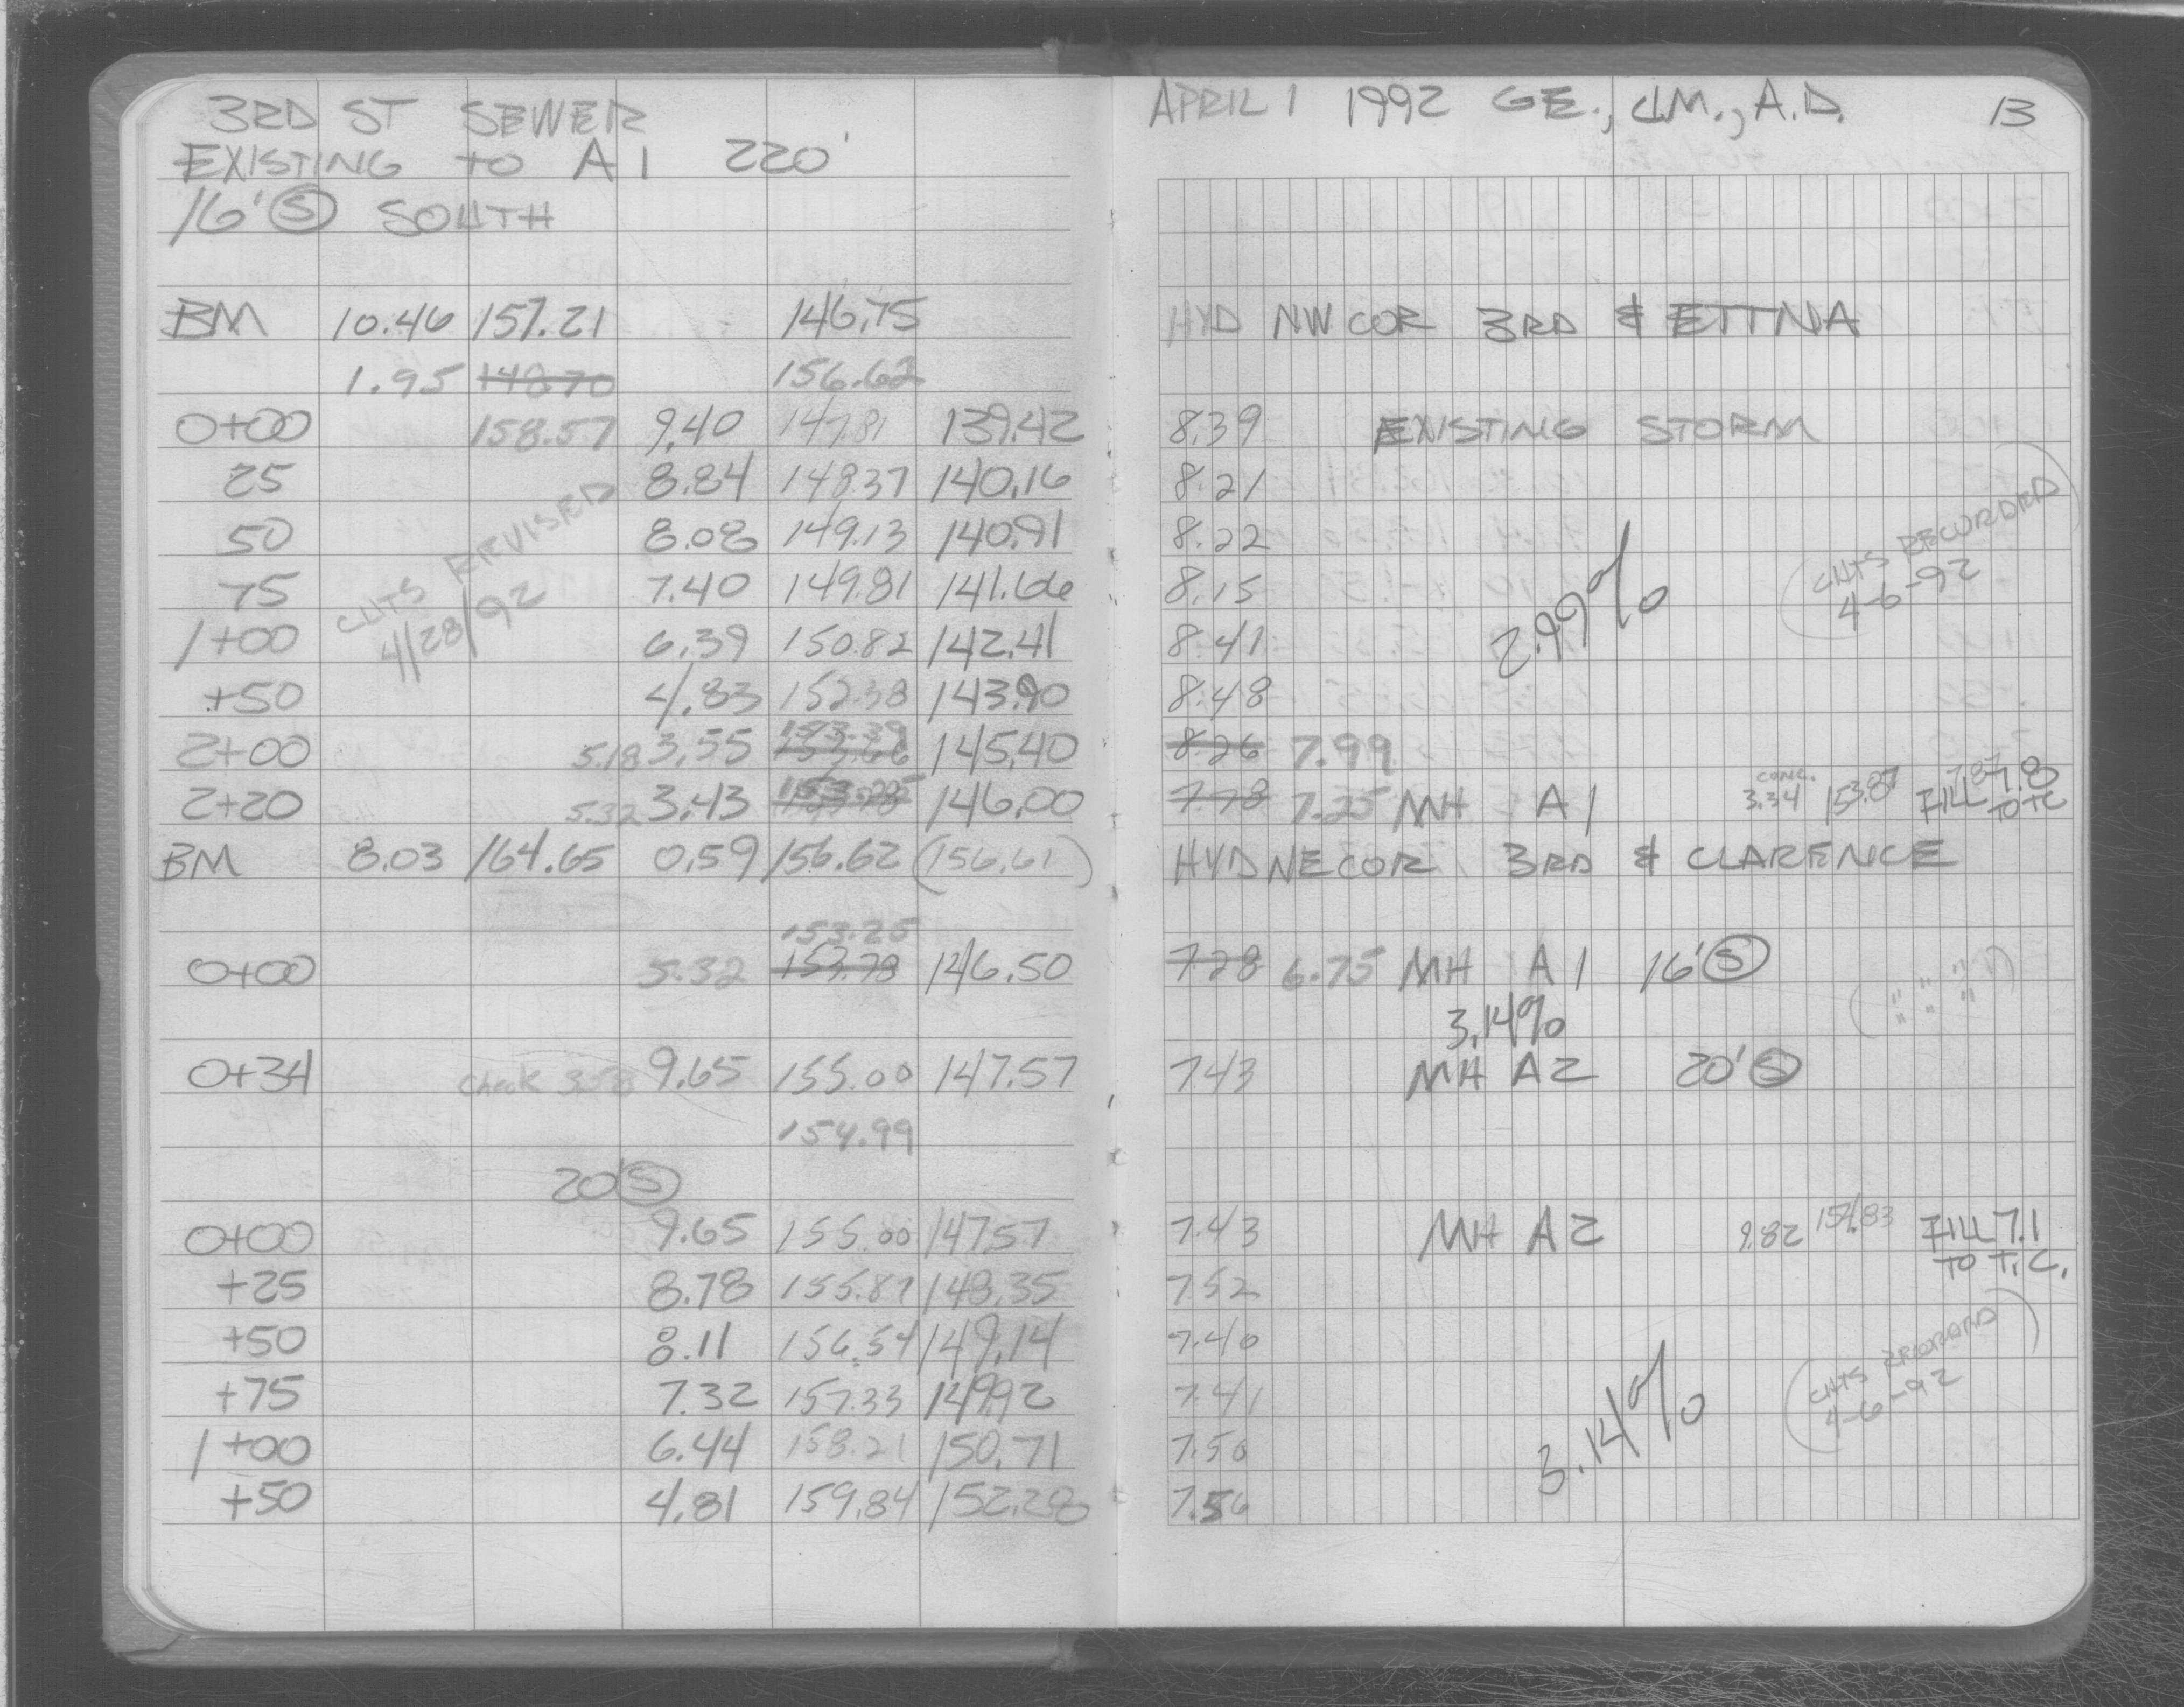 3RD ST SEWER
EXISTING TO A1 220'
16' Ⓢ SOUTH
BM 10.46 157.21 146.75
1.95 148.70 156.62
0+00 158.57 9.40 147.81 139.42
25 8.84 148.37 140.16
50 8.08 149.13 140.91
75 7.40 149.81 141.66
1+00 6.39 150.82 142.41
+50 4.83 152.38 143.90
CUTS REVISED
4/28/92
153.39
2+00 5.18 3.55 153.66 145.40
153.25
2+20 5.32 3.43 153.78 146.00
BM 8.03 164.65 0.59 156.62 (156.61)
153.25
0+00 5.32 153.78 146.50
0+34 Check 3.58 9.65 155.00 147.57
154.99
20' Ⓢ
0+00 9.65 155.00 147.57
+25 8.78 155.87 148.35
+50 8.11 156.54 149.14
+75 7.32 157.33 149.92
1+00 6.44 158.21 150.71
+50 4.81 159.84 152.28
APRIL 1 1992 GE., J.M., A.D. 13
HYD NW COR 3RD & ETTNA
8.39 EXISTING STORM
8.21
8.22
8.15
8.41
8.48
2.99%
(CUTS RECORDED
4-6-92
8.26 7.99
7.78 7.25 MH A1 CONC. 3.34 153.87 7.87 FILL 7.8 TO TC
HYD NE COR 3RD & CLARENCE
7.28 6.75 MH A1 16' Ⓢ
( " " " " " )
3.14%
7.43 MH A2 20' Ⓢ
7.43 MH A2 9.82 154.83 FILL 7.1
TO T.C.
7.52
7.40
7.41
7.50
7.56
3.14%
(CUTS RECORDED)
4-6-92